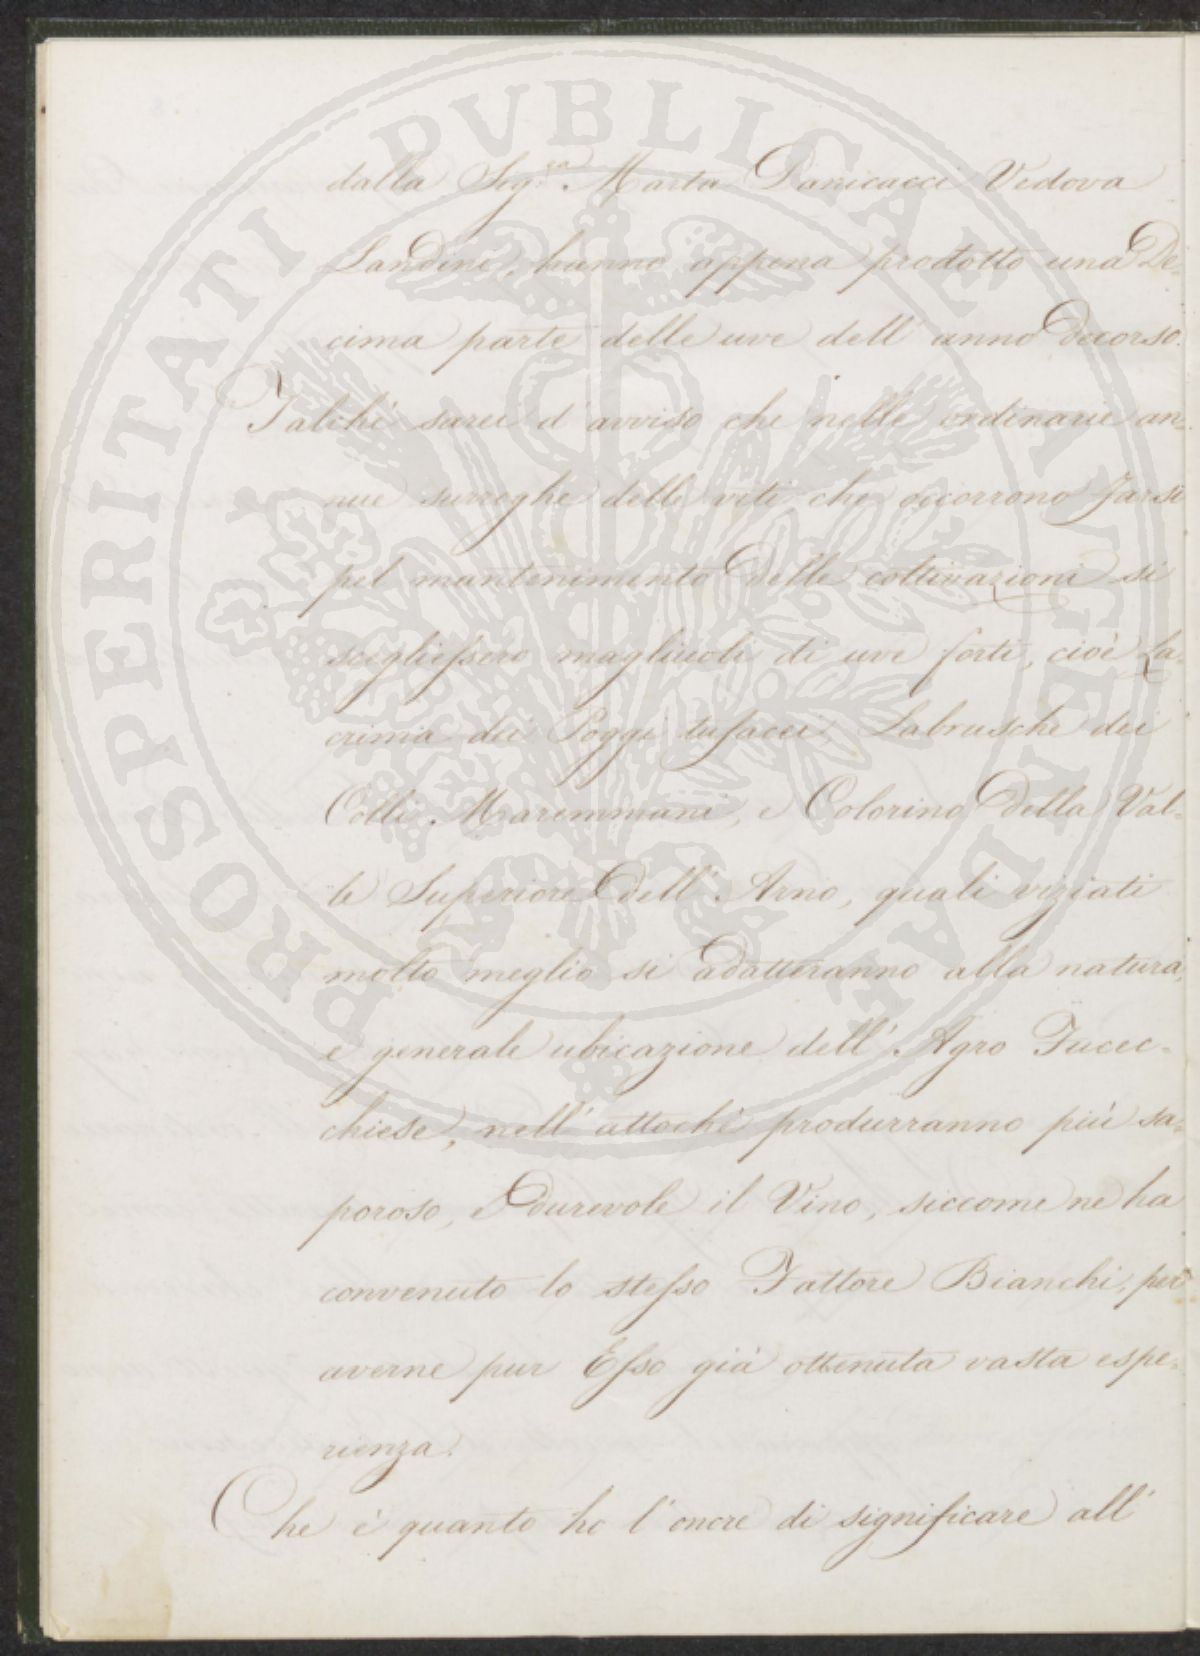 dalla Sig.ra Marta Panicacci Vedova
Landini, hanno appena prodotto una De-
cima parte delle uve dell'anno decorso.
Talchè sarei d'avviso che nelle ordinarie an-
nue surreghe delle viti che occorrono farsi
pel mantenimento delle coltivazioni si
scegliessero magliuoli di uve forti, cioè La-
crima dei Poggi tufacei, Labrusche dei
Colli Maremmani, e Colorino della Val-
le Superiore dell'Arno, quali viziati
molto meglio si adatteranno alla natura,
e generale ubicazione dell'Agro Fucec-
chiese, nell'attochè produrranno più sa-
poroso, e durevole il Vino, siccome ne ha
convenuto lo stesso Fattore Bianchi, per
averne pur Esso già ottenuta vasta espe-
rienza.
Che è quanto ho l'onore di significare all'
PROSPERITATI PVBLICAE AVGENDAE